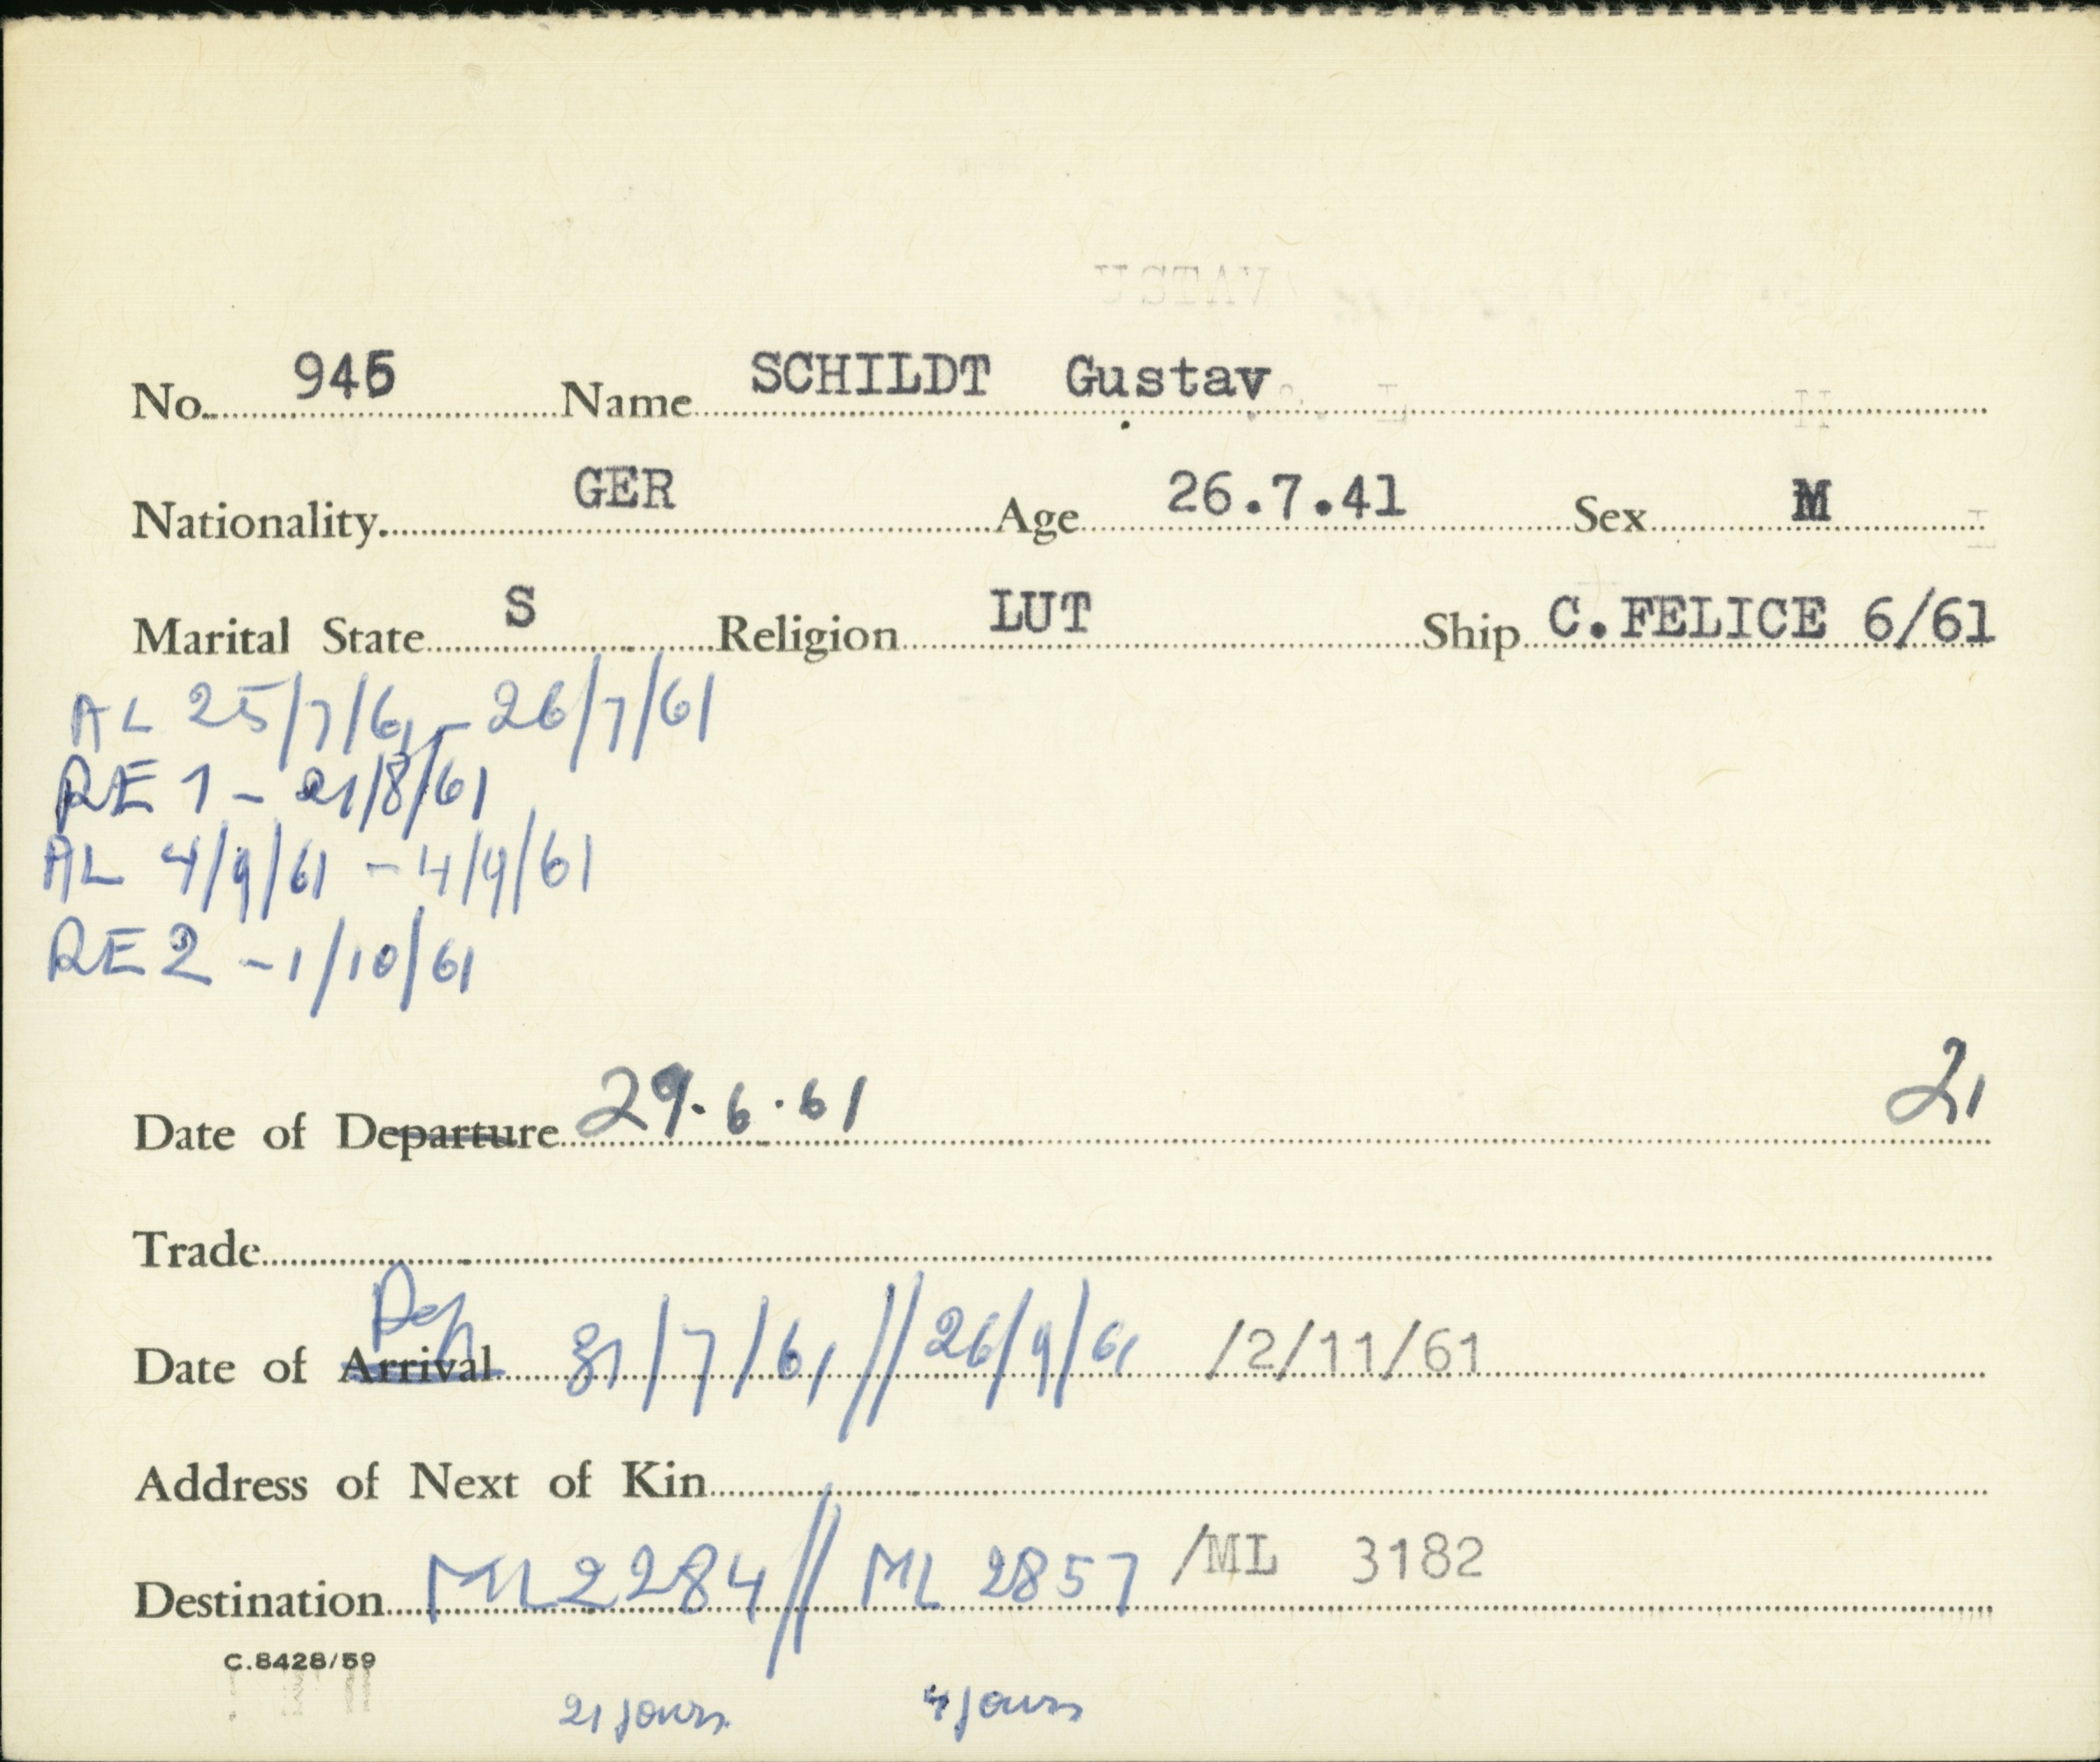 No. 945 Name SCHILDT Gustav
Nationality GER Age 26.7.41 Sex M
Marital State S Religion LUT Ship C.FELICE 6/61
AL 25/7/61 - 26/7/61
RE 1 - 21/8/61
AL 4/9/61 - 4/9/61
RE 2 - 1/10/61
Date of Departure 29.6.61 21
Trade
Dep
Date of Arrival 31/7/61 // 26/9/61 /2/11/61
Address of Next of Kin
Destination ML 2284 // ML 2857 /ML 3182
C.8428/59
21 jours 4 jours